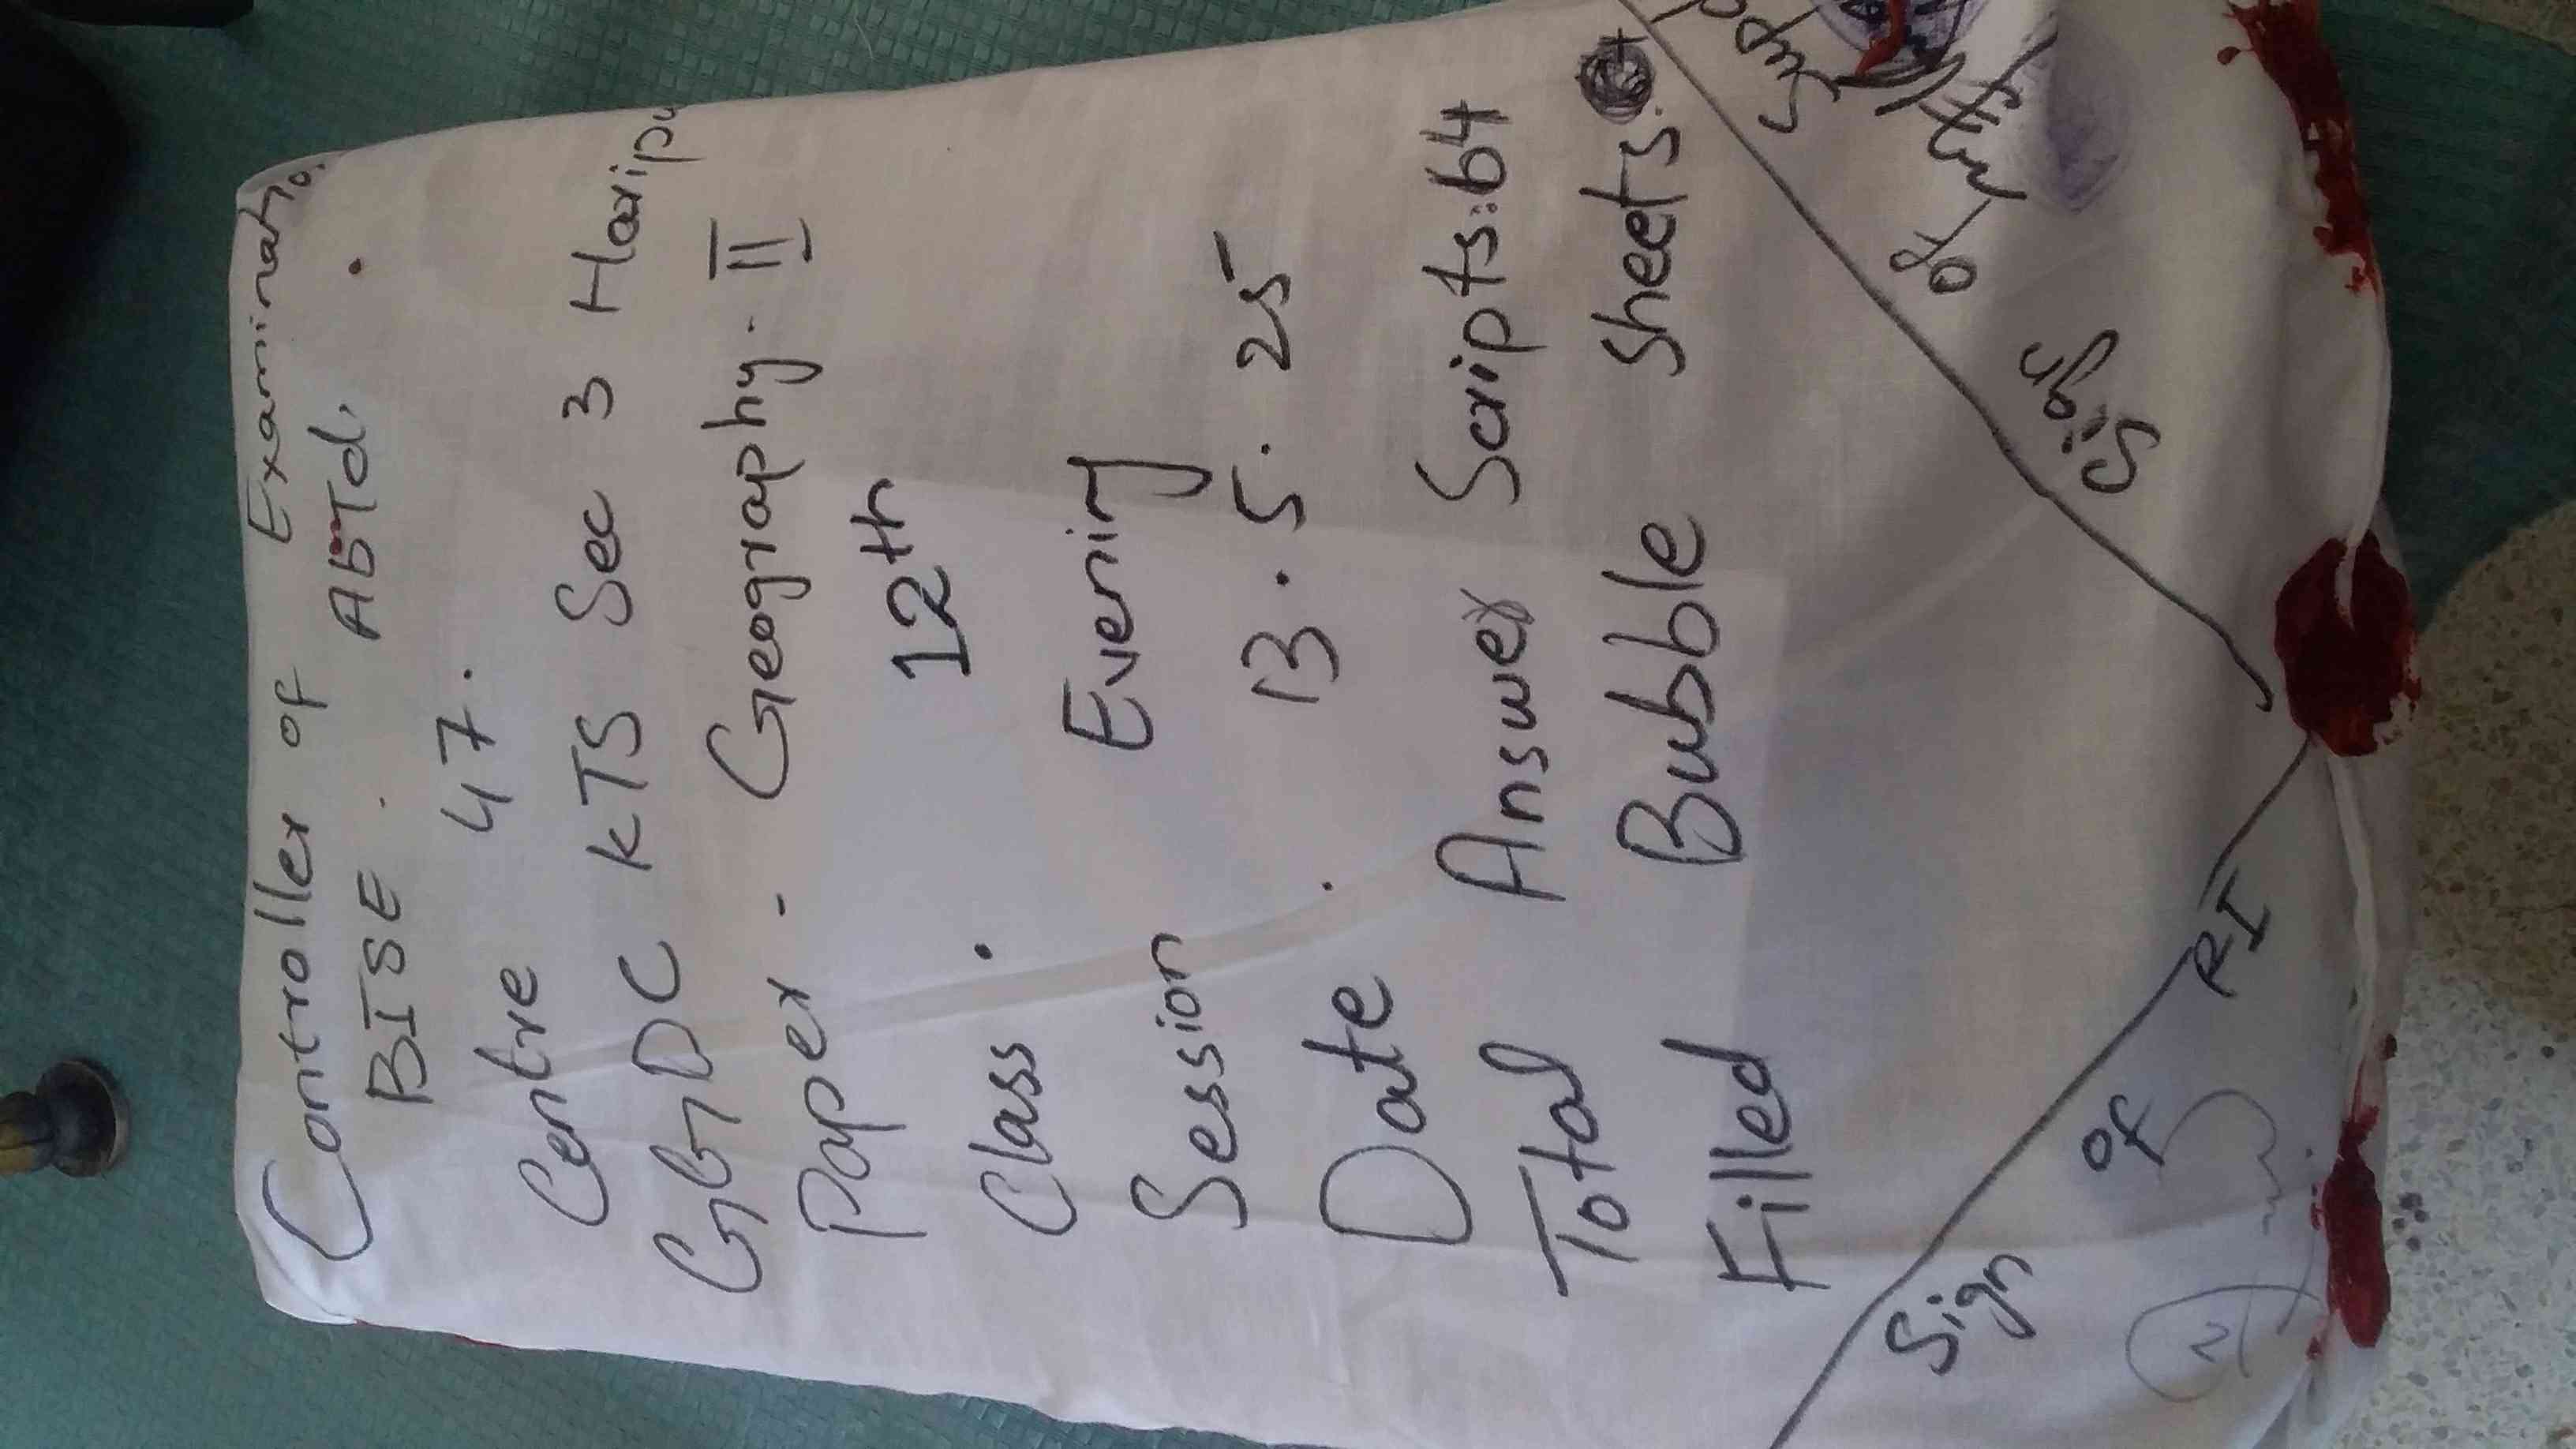 Controller of Examinatio
BISE. AbTd.
Centre 47.
GGDC KTS Sec 3 Haripu
Paper - Geography - II
Class. 12th
Session Evening
Date 13.5.25
Total Answer Scripts: 64
Filled Bubble Sheets.
Sign of RI
Sign of Supd